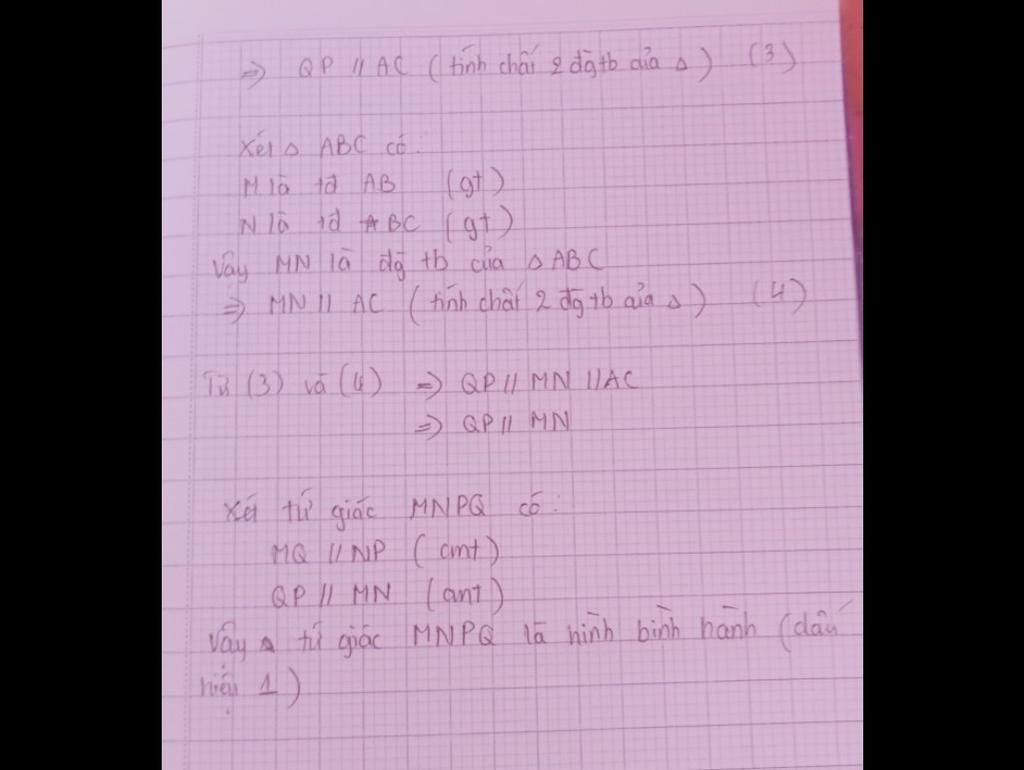 => QP // AC (tính chất 2 đg tb của Δ) (3)
Xét Δ ABC có:
M là tđ AB (gt)
N là tđ BC (gt)
Vậy MN là đg tb của Δ ABC
=> MN // AC (tính chất 2 đg tb của Δ) (4)
Từ (3) và (4) => QP // MN // AC
=> QP // MN
Xét tứ giác MNPQ có:
MQ // NP (cmt)
QP // MN (cmt)
Vậy tứ giác MNPQ là hình bình hành (dấu
hiệu 1)